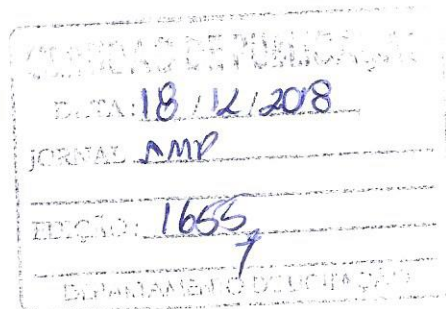 CERTIDÃO DE PUBLICAÇÃO
DATA: 18 / 12 / 2018
JORNAL AMP
EDIÇÃO: 1655
7
DEPARTAMENTO DE LICITAÇÃO